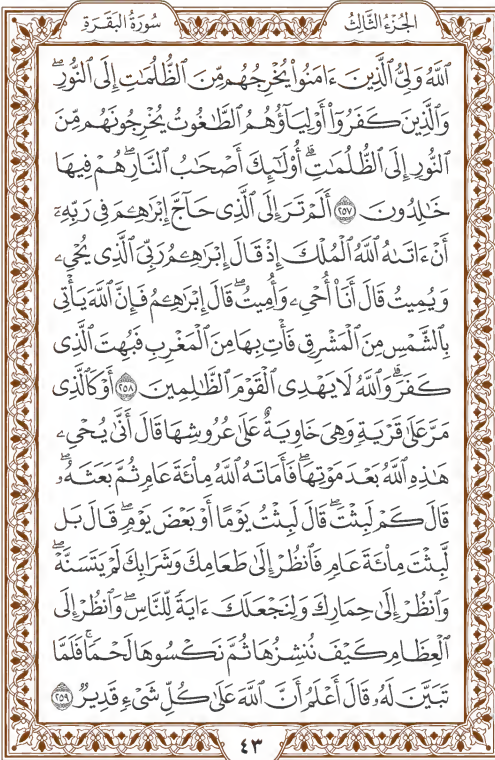 الجُزْءُ الثَّالِثُ
سُورَةُ البَقَرَةِ
ٱللَّهُ وَلِيُّ ٱلَّذِينَ ءَامَنُوا۟ يُخْرِجُهُم مِّنَ ٱلظُّلُمَـٰتِ إِلَى ٱلنُّورِۖ
وَٱلَّذِينَ كَفَرُوٓا۟ أَوْلِيَآؤُهُمُ ٱلطَّـٰغُوتُ يُخْرِجُونَهُم مِّنَ
ٱلنُّورِ إِلَى ٱلظُّلُمَـٰتِۗ أُو۟لَـٰٓئِكَ أَصْحَـٰبُ ٱلنَّارِۖ هُمْ فِيهَا
خَـٰلِدُونَ ٢٥٧ أَلَمْ تَرَ إِلَى ٱلَّذِى حَآجَّ إِبْرَٰهِـۧمَ فِى رَبِّهِۦٓ
أَنْ ءَاتَىٰهُ ٱللَّهُ ٱلْمُلْكَ إِذْ قَالَ إِبْرَٰهِـۧمُ رَبِّىَ ٱلَّذِى يُحْىِۦ
وَيُمِيتُ قَالَ أَنَا۠ أُحْىِۦ وَأُمِيتُۖ قَالَ إِبْرَٰهِـۧمُ فَإِنَّ ٱللَّهَ يَأْتِى
بِٱلشَّمْسِ مِنَ ٱلْمَشْرِقِ فَأْتِ بِهَا مِنَ ٱلْمَغْرِبِ فَبُهِتَ ٱلَّذِى
كَفَرَۗ وَٱللَّهُ لَا يَهْدِى ٱلْقَوْمَ ٱلظَّـٰلِمِينَ ٢٥٨ أَوْ كَٱلَّذِى
مَرَّ عَلَىٰ قَرْيَةٍ وَهِىَ خَاوِيَةٌ عَلَىٰ عُرُوشِهَا قَالَ أَنَّىٰ يُحْىِۦ
هَـٰذِهِ ٱللَّهُ بَعْدَ مَوْتِهَاۖ فَأَمَاتَهُ ٱللَّهُ مِا۟ئَةَ عَامٍ ثُمَّ بَعَثَهُۥۖ
قَالَ كَمْ لَبِثْتَۖ قَالَ لَبِثْتُ يَوْمًا أَوْ بَعْضَ يَوْمٍۖ قَالَ بَل
لَّبِثْتَ مِا۟ئَةَ عَامٍ فَٱنظُرْ إِلَىٰ طَعَامِكَ وَشَرَابِكَ لَمْ يَتَسَنَّهْۖ
وَٱنظُرْ إِلَىٰ حِمَارِكَ وَلِنَجْعَلَكَ ءَايَةً لِّلنَّاسِۖ وَٱنظُرْ إِلَى
ٱلْعِظَامِ كَيْفَ نُنشِزُهَا ثُمَّ نَكْسُوهَا لَحْمًاۚ فَلَمَّا
تَبَيَّنَ لَهُۥ قَالَ أَعْلَمُ أَنَّ ٱللَّهَ عَلَىٰ كُلِّ شَىْءٍ قَدِيرٌ ٢٥٩
٤٣